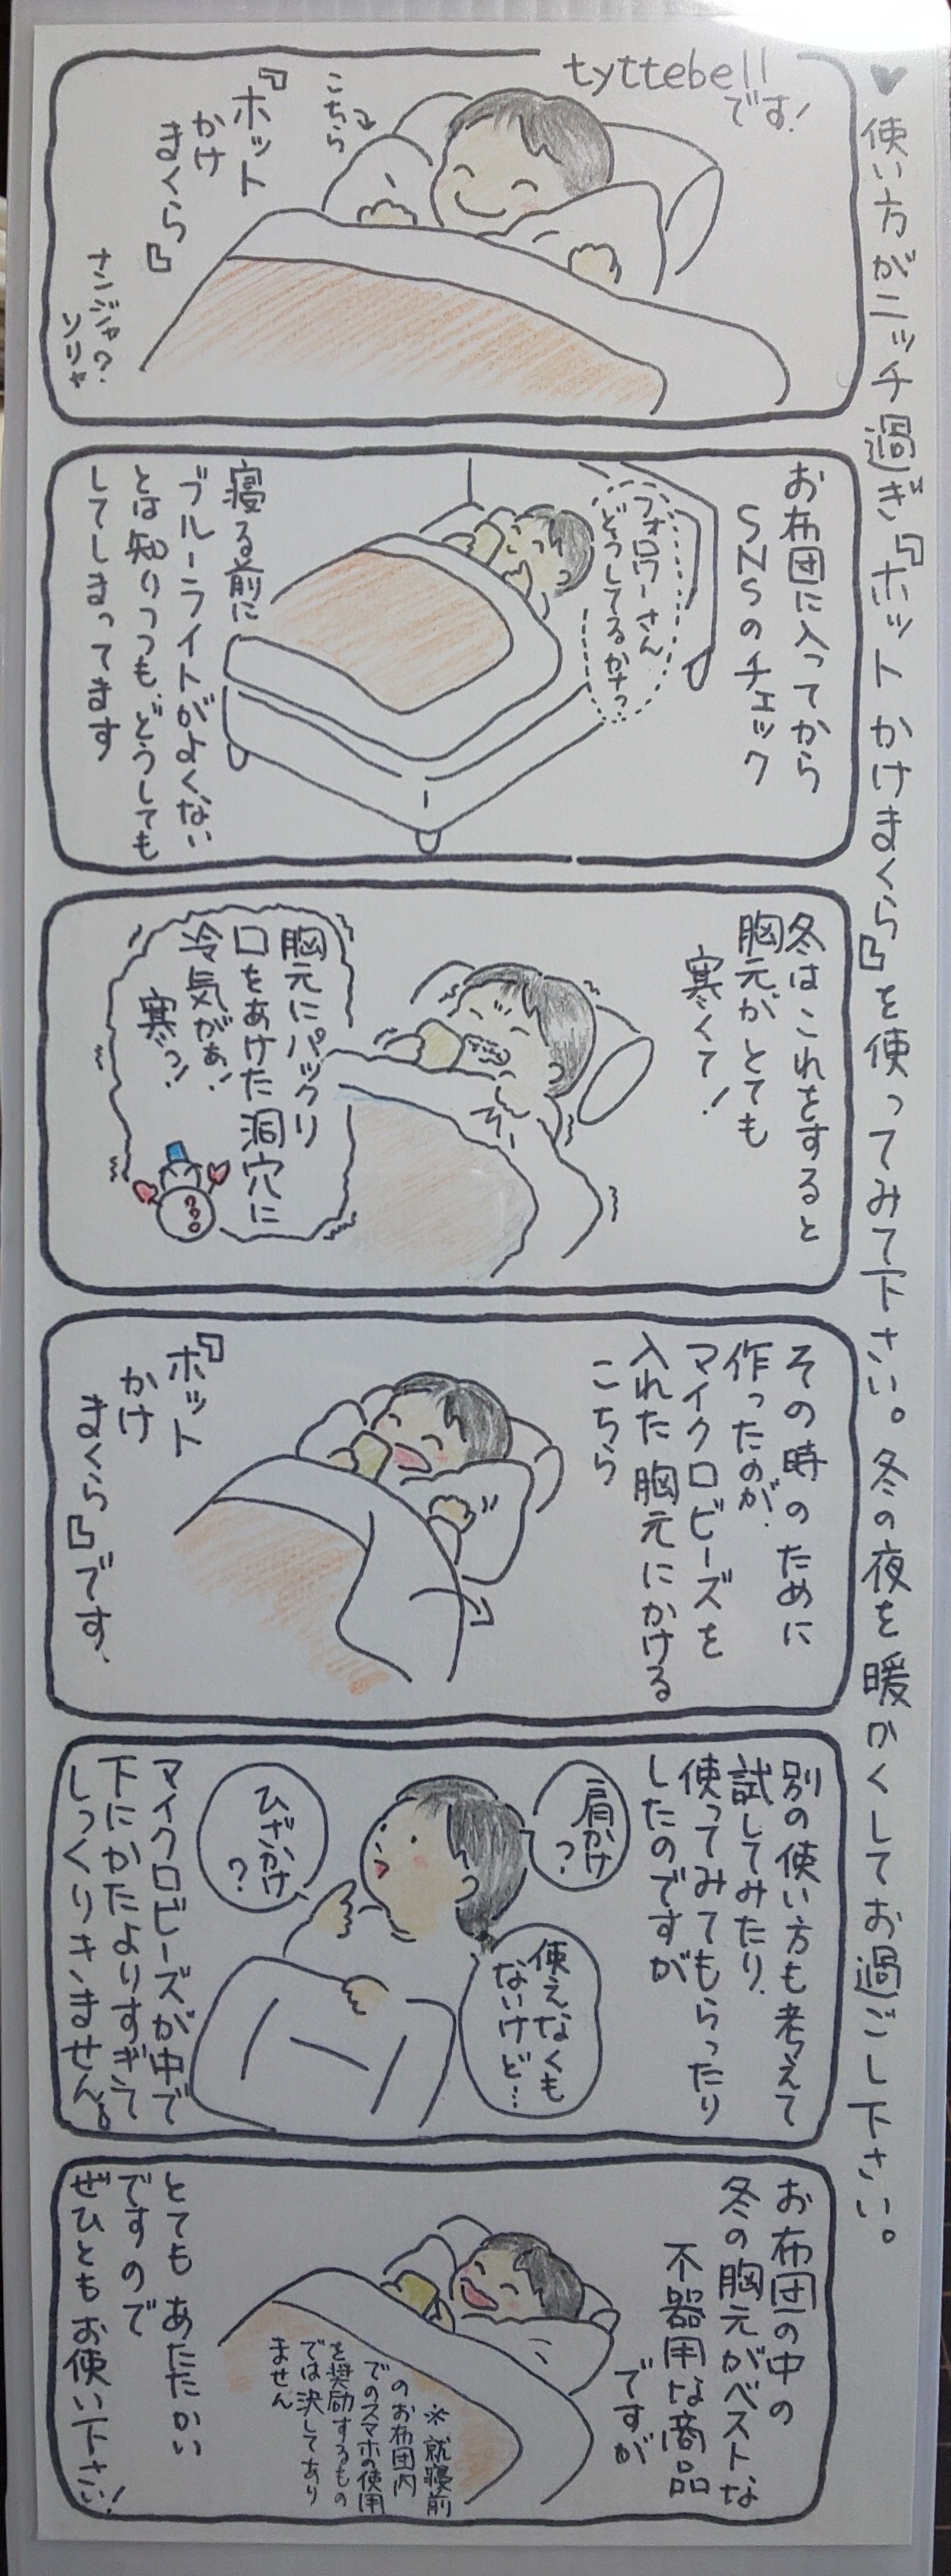 ♥使い方がニッチ過ぎ『ホットかけまくら』を使ってみて下さい。冬の夜を暖かくしてお過ごし下さい。
tyttebell
です!
こちら
『ホット
かけ
まくら』
ナンジャ?
ソリャ
お布団に入ってから
SNSのチェック
フォロワーさん
どうしてるかナっ
寝る前に
ブルーライトがよくない
とは知りつつも、どうしても
してしまってます
冬はこれをすると
胸元がとても
寒くて!
胸元にパックリ
口をあけた洞穴に
冷気がぁ!
寒っ!
その時のために
作ったのが、
マイクロビーズを
入れた胸元にかける
こちら
『ホット
かけ
まくら』です、
別の使い方も考えて
試してみたり、
使ってみてもらったり
したのですが
肩かけ
?
ひざかけ
?
使えなくも
ないけど…
マイクロビーズが中で
下にかたよりすぎて
しっくりきません。
お布団の中の
冬の胸元がベストな
不器用な商品
ですが
※就寝前
のお布団内
でのスマホの使用
を奨励するもの
では決してあり
ません
とてもあたたかい
ですので
ぜひともお使い下さい!